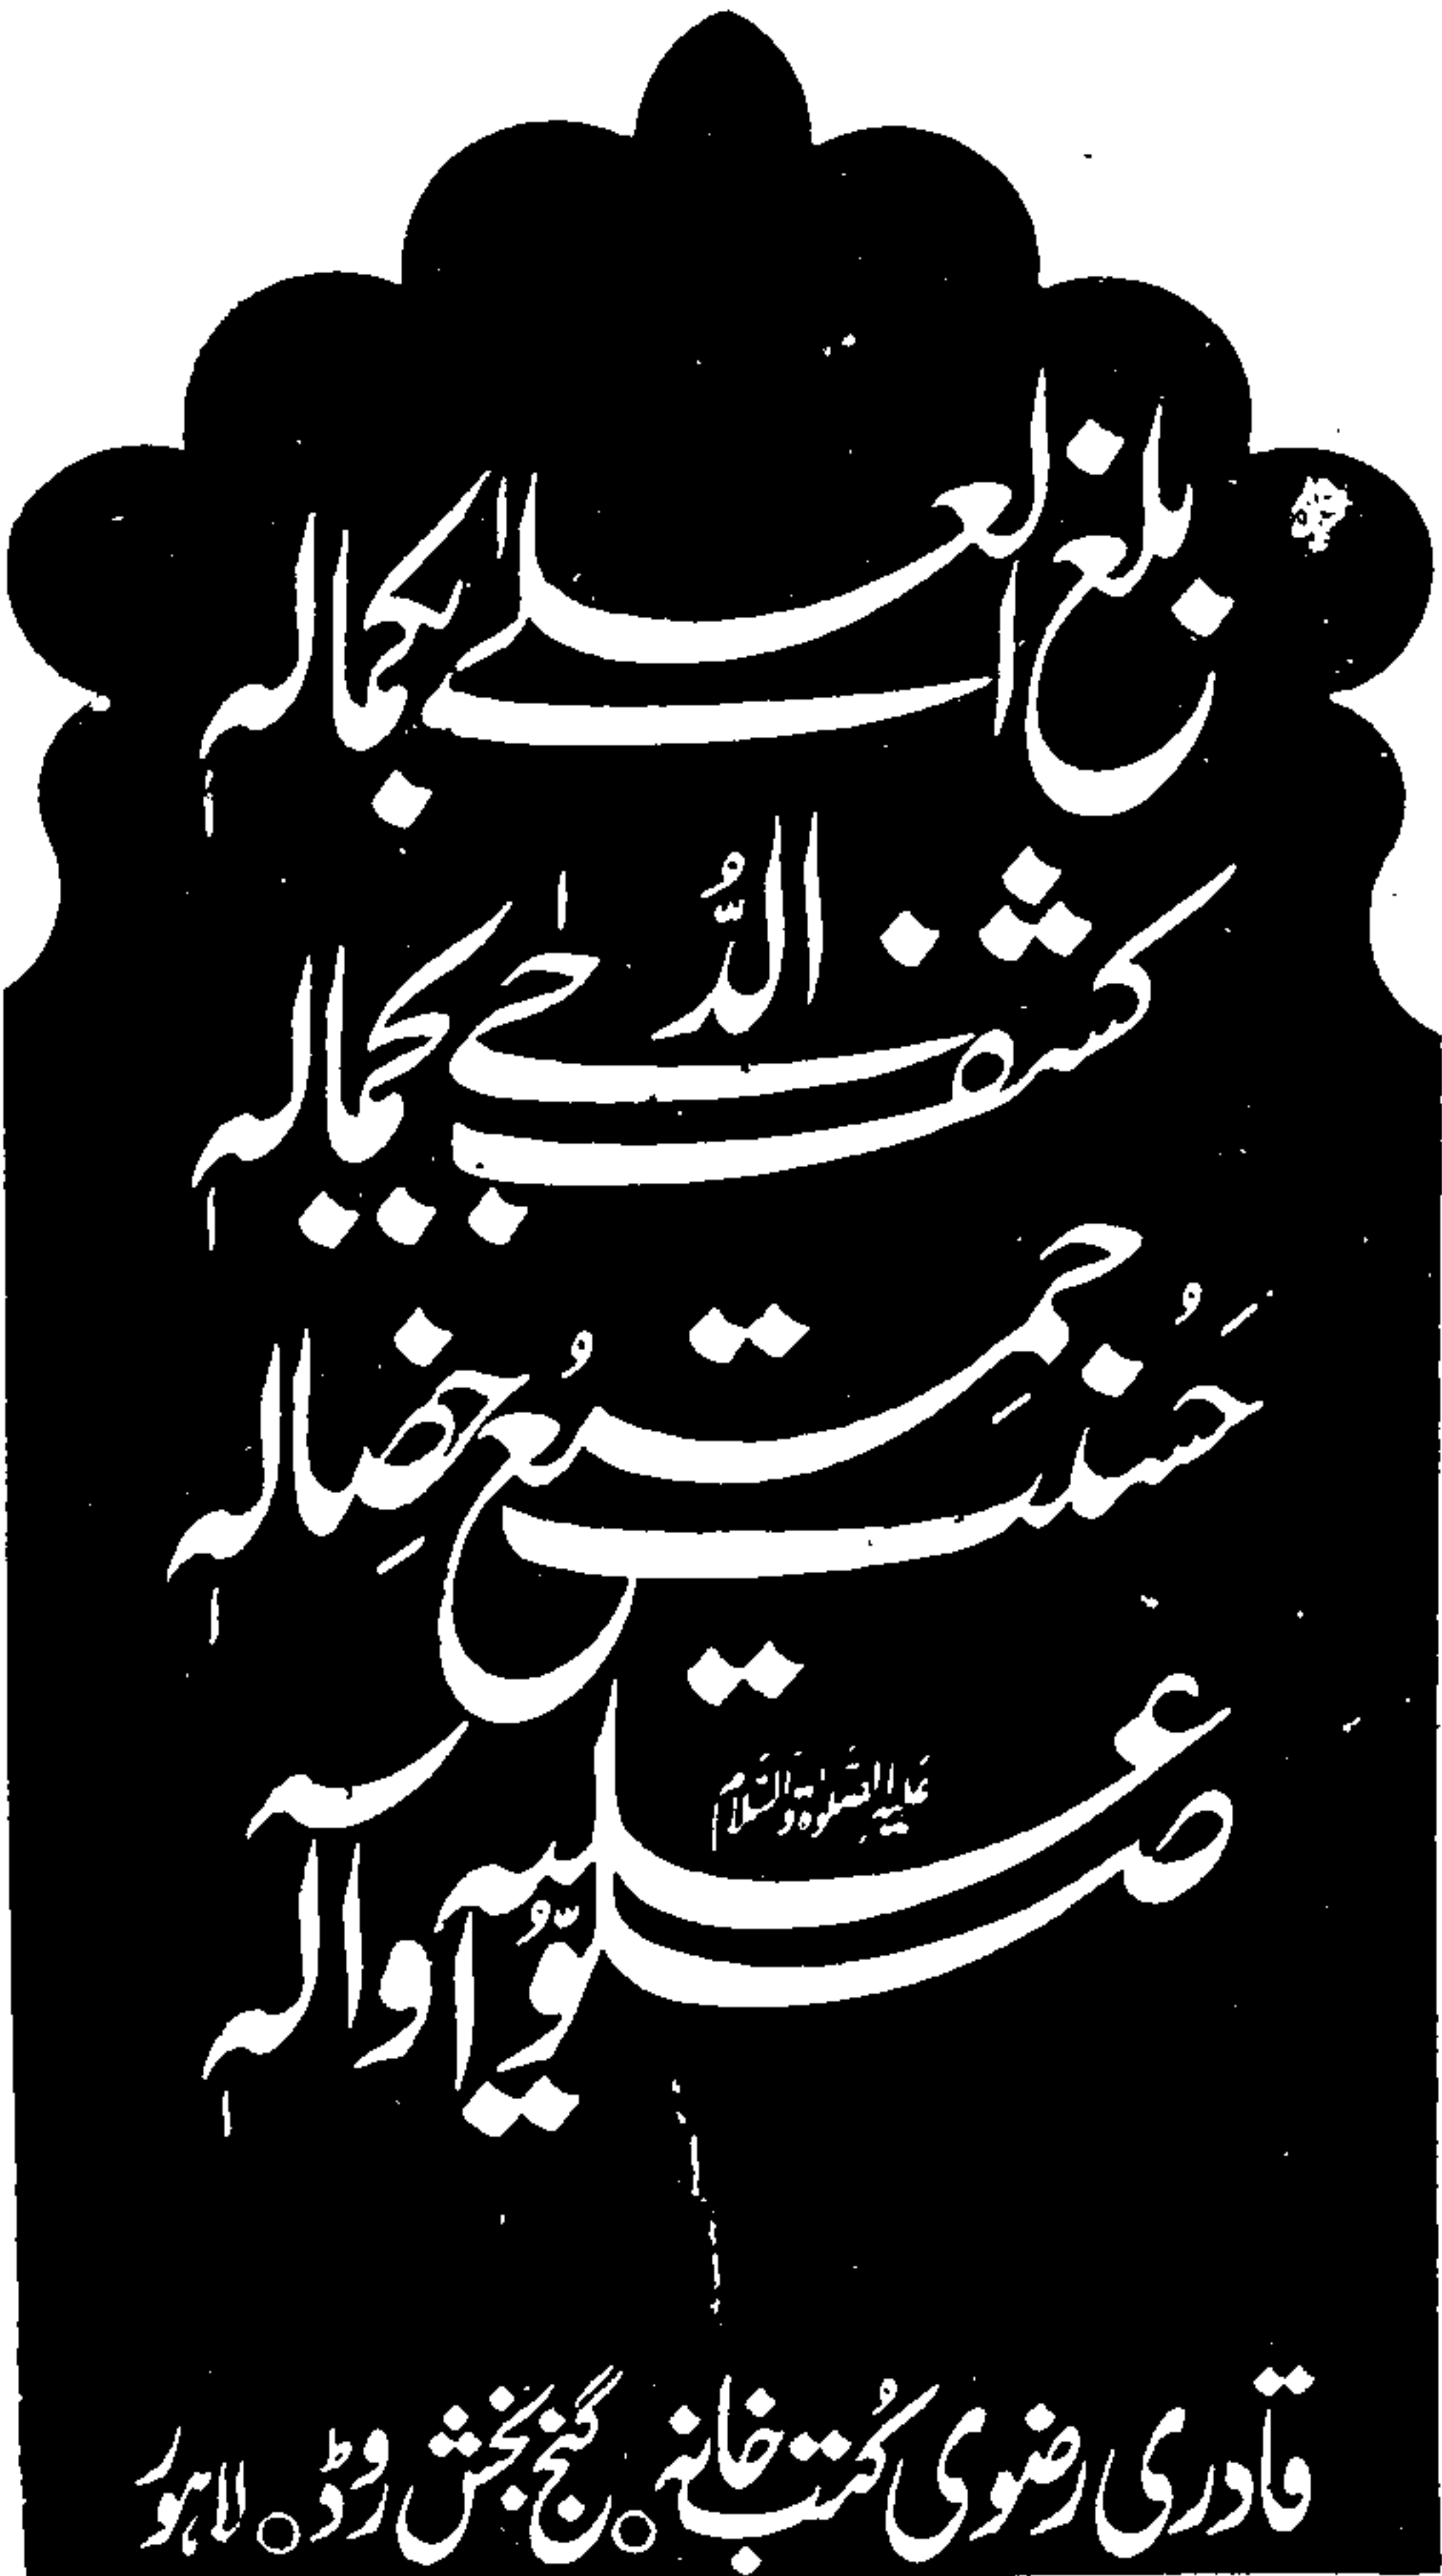 بلغ العلےٰ بکمالہٖ
کشف الدُّجےٰ بجمالہٖ
حَسُنت جمیعُ خِصالہٖ
صلّوا علیہ وآلہٖ
علیہ الصلوٰۃ والسلام
قادری رضوی کُتب خانہ ○ گنج بخش روڈ ○ لاہور